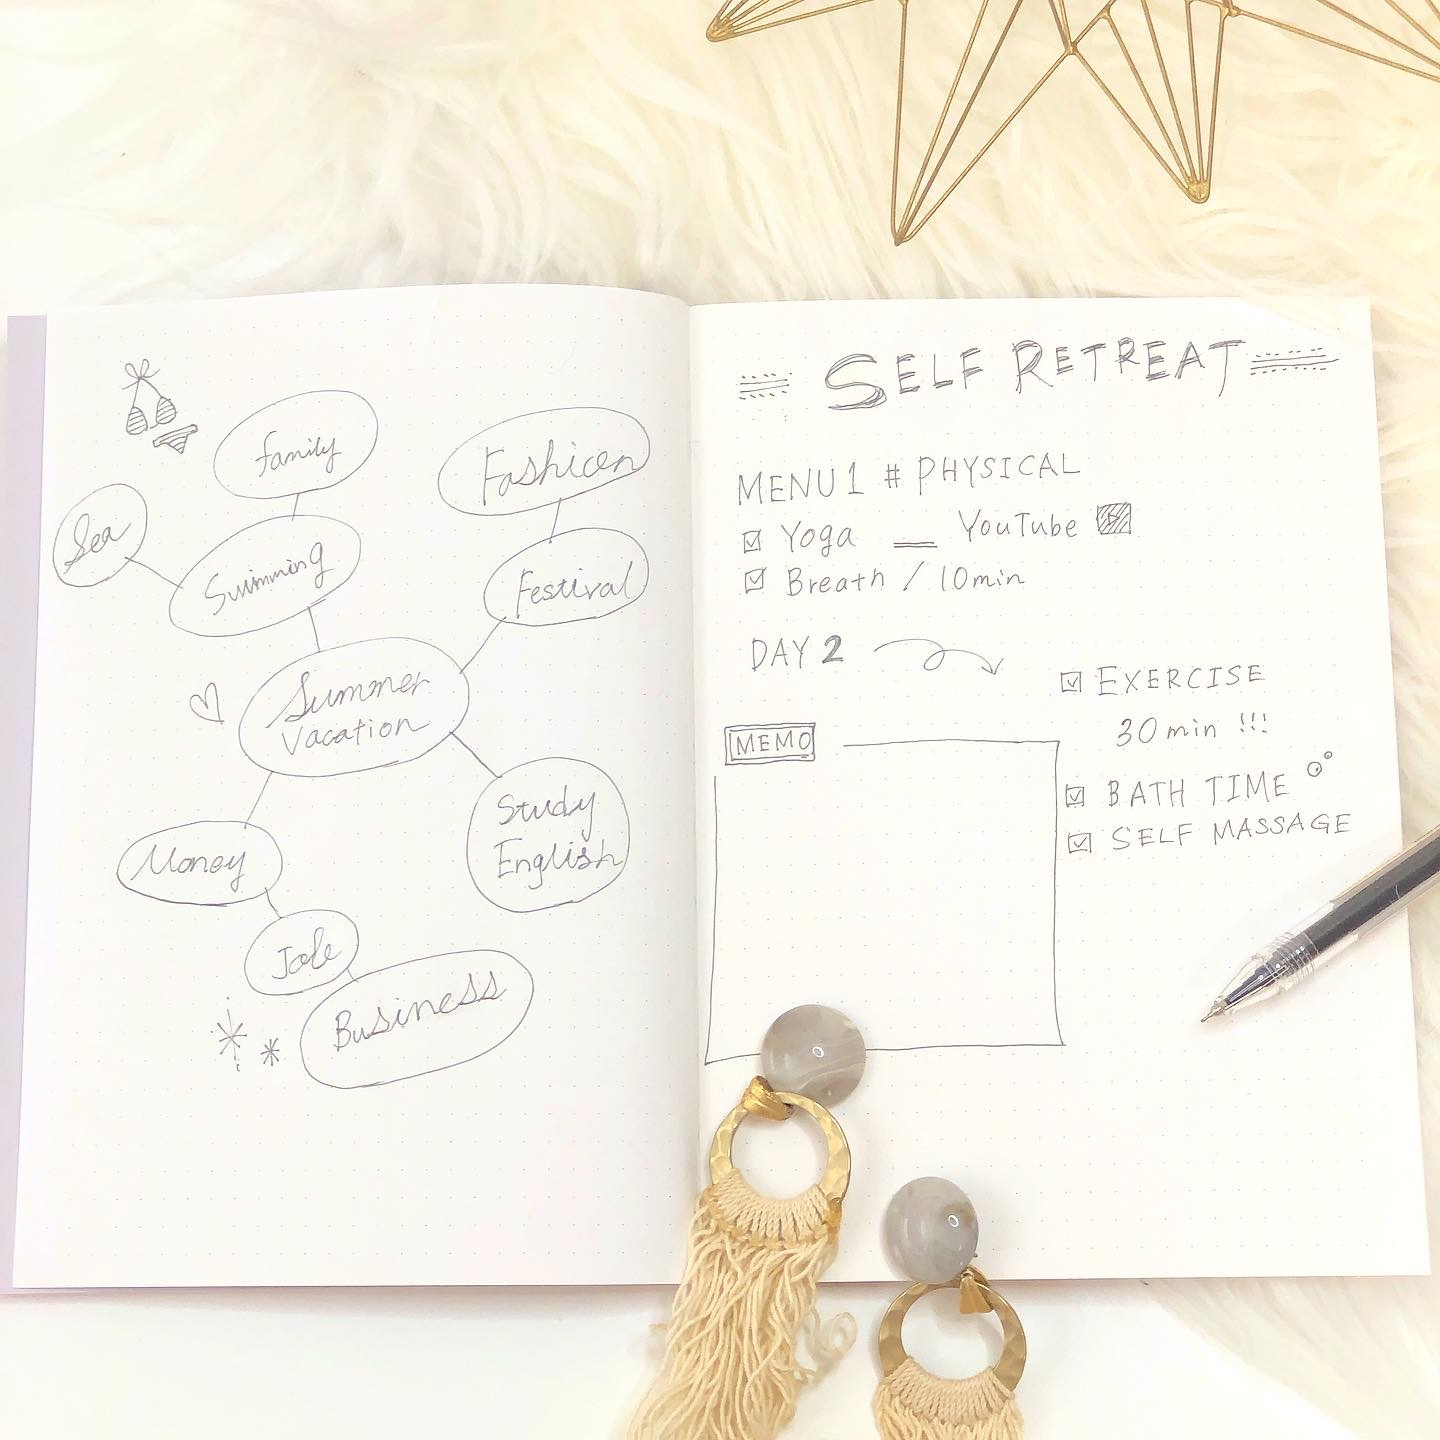 family
Fashion
Sea
Swimming
Festival
Summer
Vacation
Study
English
Money
Business
SELF RETREAT
MENU1 # PHYSICAL
Yoga YouTube
Breath / 10min
DAY 2
EXERCISE
30min !!!
MEMO
BATH TIME
SELF MASSAGE